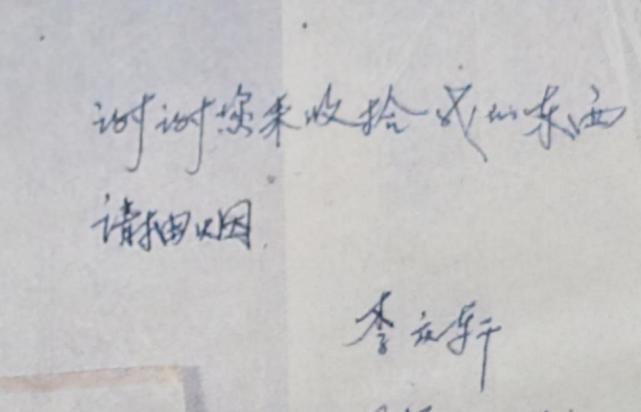 谢谢您来收拾我的东西
请抽烟.
李文轩